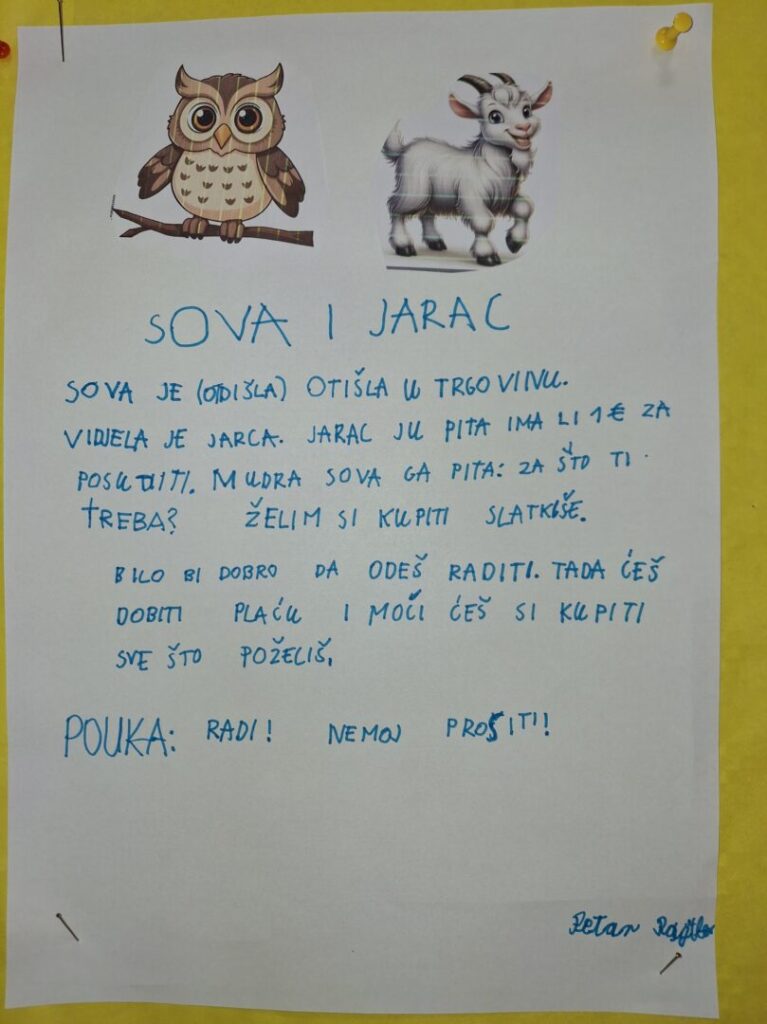 SOVA I JARAC
SOVA JE (OTDIŠLA) OTIŠLA U TRGOVINU.
VIDJELA JE JARCA. JARAC JU PITA IMA LI 1€ ZA
POSUDITI. MUDRA SOVA GA PITA: ZA ŠTO TI
TREBA? ŽELIM SI KUPITI SLATKIŠE.
BILO BI DOBRO DA ODEŠ RADITI. TADA ĆEŠ
DOBITI PLAĆU I MOĆI ĆEŠ SI KUPITI
SVE ŠTO POŽELIŠ.
POUKA: RADI! NEMOJ PROSITI!
Petar